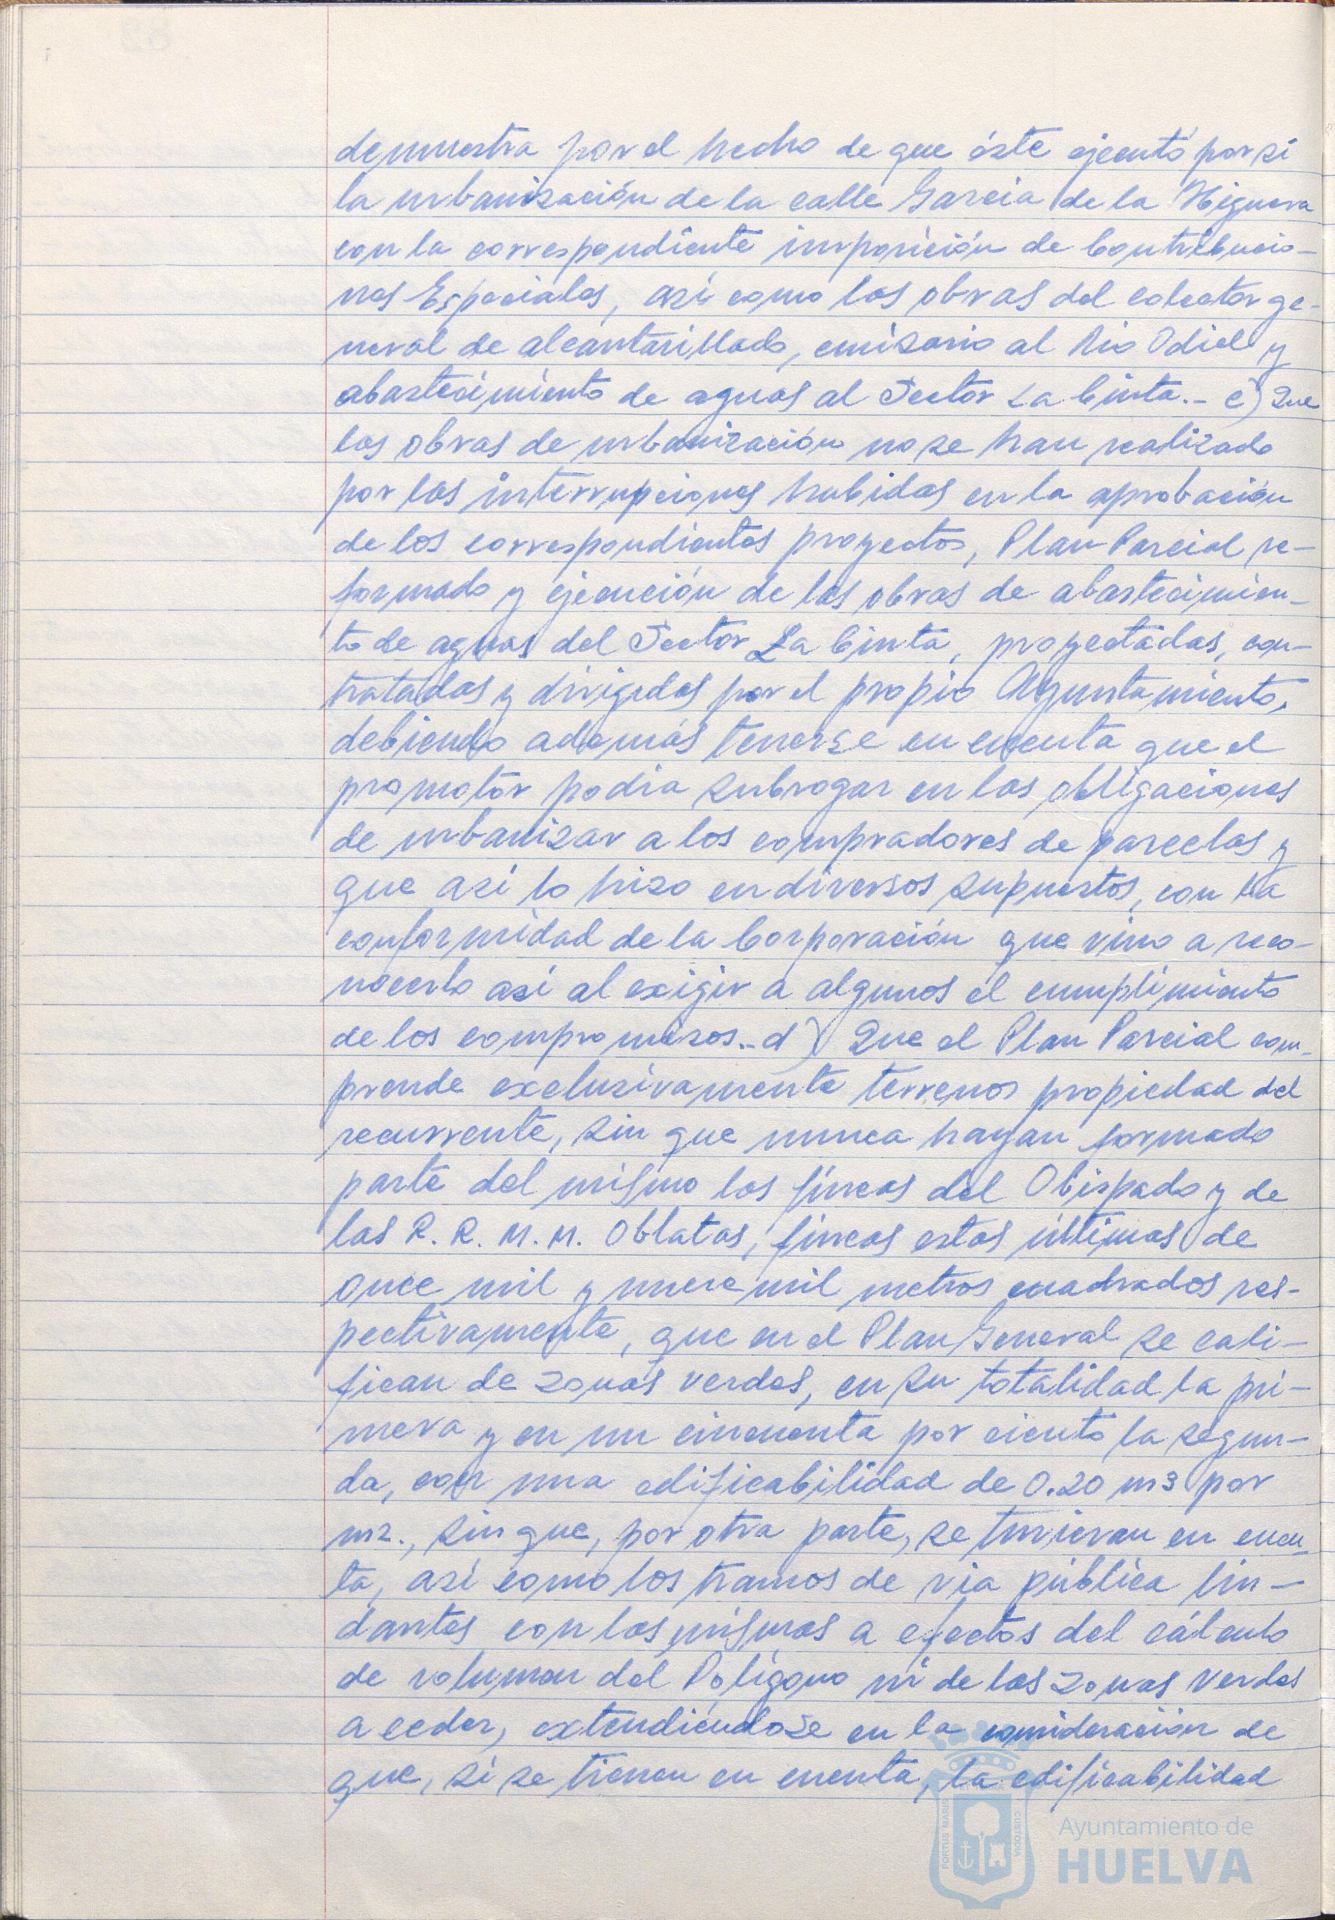 demuestra por el hecho de que éste ejecutó por si
la urbanización de la calle Garcia de la Higuera
con la correspondiente imposición de Contribucio-
nes Especiales, así como las obras del colector ge-
neral de alcantarillado, emisario al Rio Odiel y
abastecimiento de aguas al Sector La Cinta.- c) Que
las obras de urbanización no se han realizado
por las interrupciones habidas en la aprobación
de los correspondientes proyectos, Plan Parcial re-
formado y ejecución de las obras de abastecimien-
to de aguas del Sector La Cinta, proyectadas, con-
tratadas y dirigidas por el propio Ayuntamiento,
debiendo además tenerse en cuenta que el
promotor podia subrogar en las obligaciones
de urbanizar a los compradores de parcelas y
que así lo hizo en diversos supuestos, con la
conformidad de la Corporación que vino a reco-
nocerlo así al exigir a algunos el cumplimiento
de los compromisos.- d) Que el Plan Parcial com-
prende exclusivamente terrenos propiedad del
recurrente, sin que nunca hayan formado
parte del mismo las fincas del Obispado y de
las R. R. M. M. Oblatas, fincas estas últimas de
once mil y nueve mil metros cuadrados res-
pectivamente, que en el Plan General se cali-
fican de zonas verdes, en su totalidad la pri-
mera y en un cincuenta por ciento la segun-
da, con una edificabilidad de 0.20 m3 por
m2., sin que, por otra parte, se tuvieran en cuen-
ta, así como los tramos de via pública lin-
dantes con las mismas a efectos del cálculo
de volumen del Polígono ni de las zonas verdes
a ceder, extendiéndose en la consideración de
que, si se tienen en cuenta, la edificabilidad
PORTUS MARIS CUSTODIA
Ayuntamiento de
HUELVA